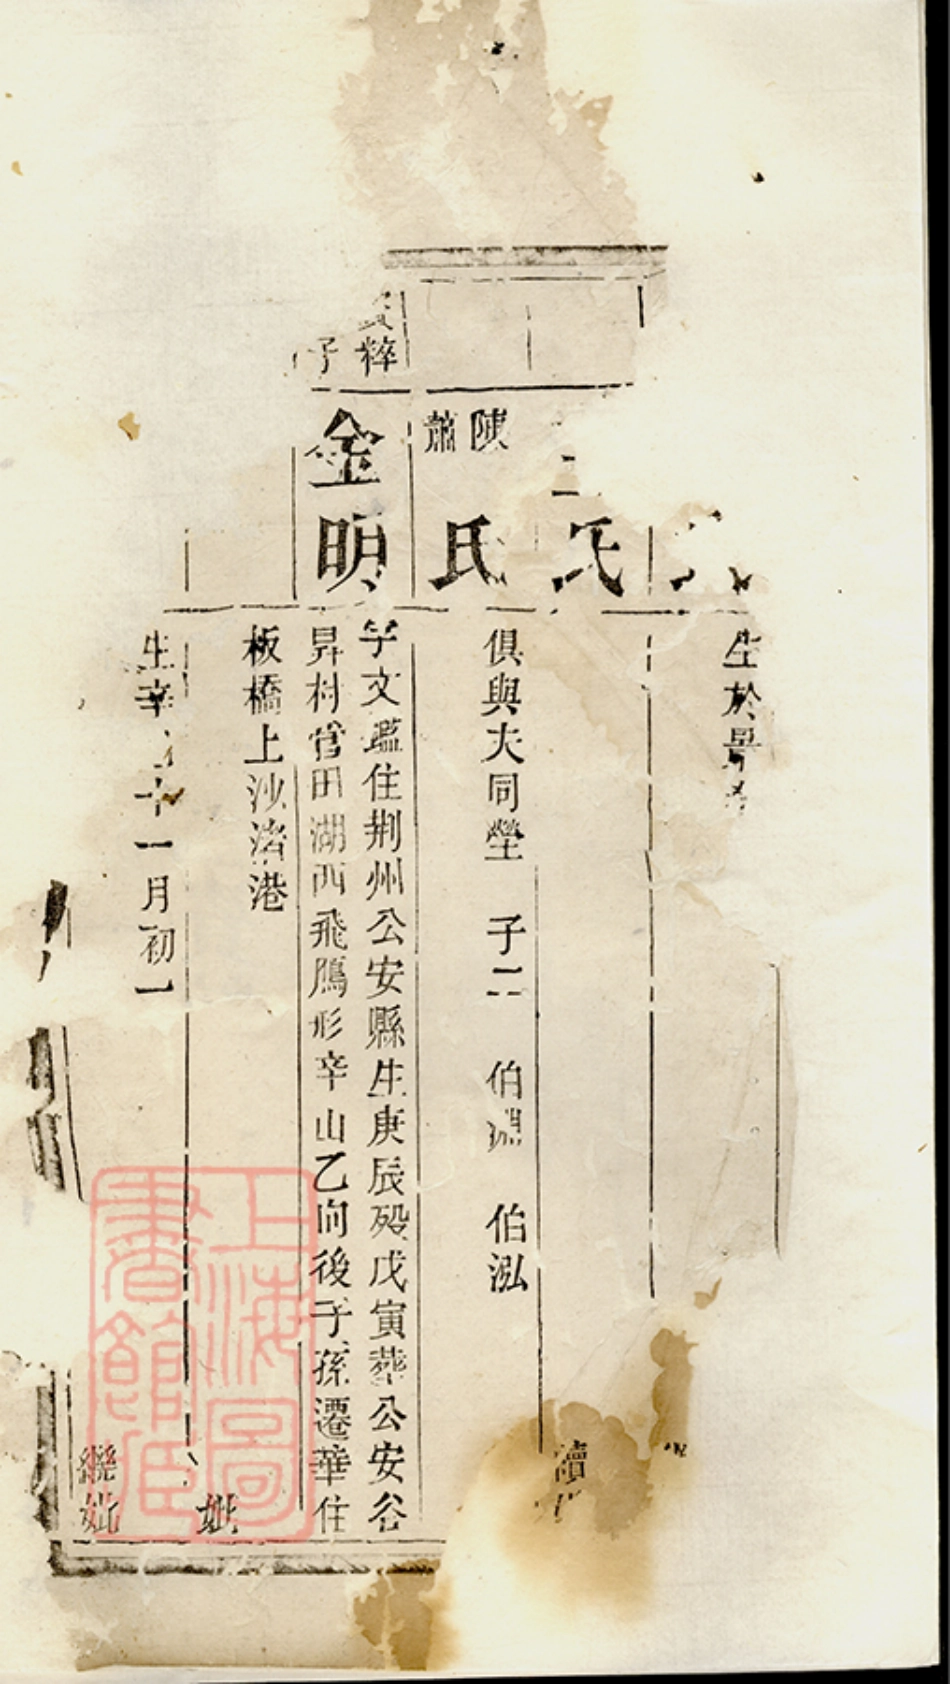 生於
氏
陳
蕭
氏
俱與夫同塋 子二 伯 伯泓
粹
子
金明
字文鑑住荆州公安縣生庚辰歿戊寅葬公安公
昇村官田湖西飛鴈形辛山乙向後子孫遷華住
板橋上沙渚港
妣
生辛 十一月初一
繼妣
上海圖
書館藏